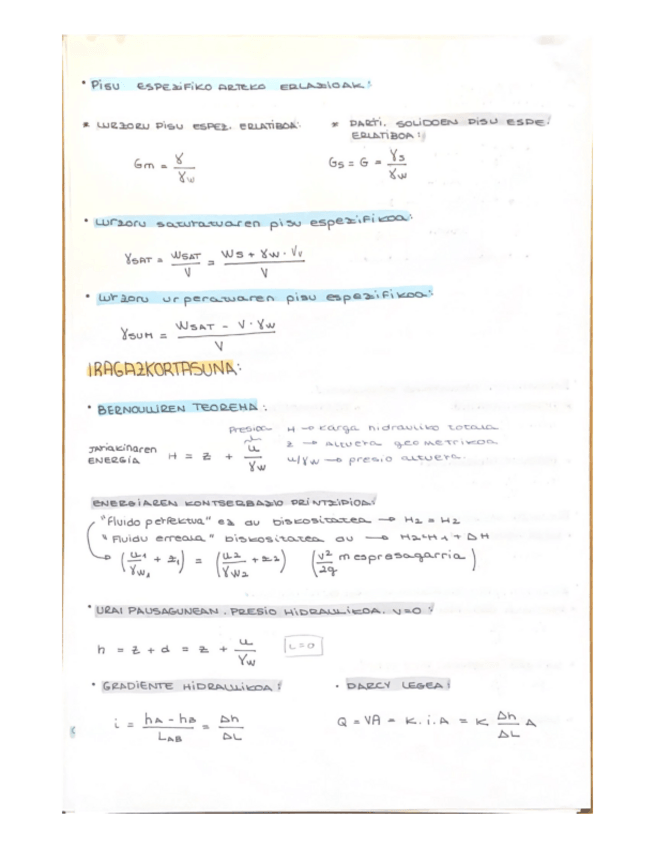 • PISU ESPEZIFIKO ARTEKO ERLAZIOAK:
* LURZORU PISU ESPEZ. ERLATIBOA:
Gm = γ / γw
* PARTI. SOLIDOEN PISU ESPE. ERLATIBOA:
Gs = G = γs / γw
• Lurzoru saturatuaren pisu espezifikoa:
γSAT = WSAT / V = (Ws + γw · Vv) / V
• Lurzoru urperatuaren pisu espezifikoa:
γSUM = (WSAT - V · γw) / V
IRAGAZKORTASUNA:
• BERNOULLIREN TEOREMA:
JARIAKINAREN ENERGIA H = z + u / γw
PRESIOA
H → karga hidrauliko totala
z → Altuera geometrikoa
u/γw → presio altuera.
ENERGIAREN KONTSERBAZIO PRINTZIPIOA:
"Fluido perfektua" ez du biskositatea → H2 = H2
"Fluidu erreala" biskositatea du → H2=H1 + ΔH
(u1 / γw1 + z1) = (u2 / γw2 + z2) (v² / 2g mespresagarria)
• URAI PAUSAGUNEAN. PRESIO HIDRAULIKOA. V=0:
h = z + d = z + u / γw
i=0
• GRADIENTE HIDRAULIKOA:
i = (hA - hB) / LAB = Δh / ΔL
• DARCY LEGEA:
Q = VA = K.i.A = K Δh / ΔL A